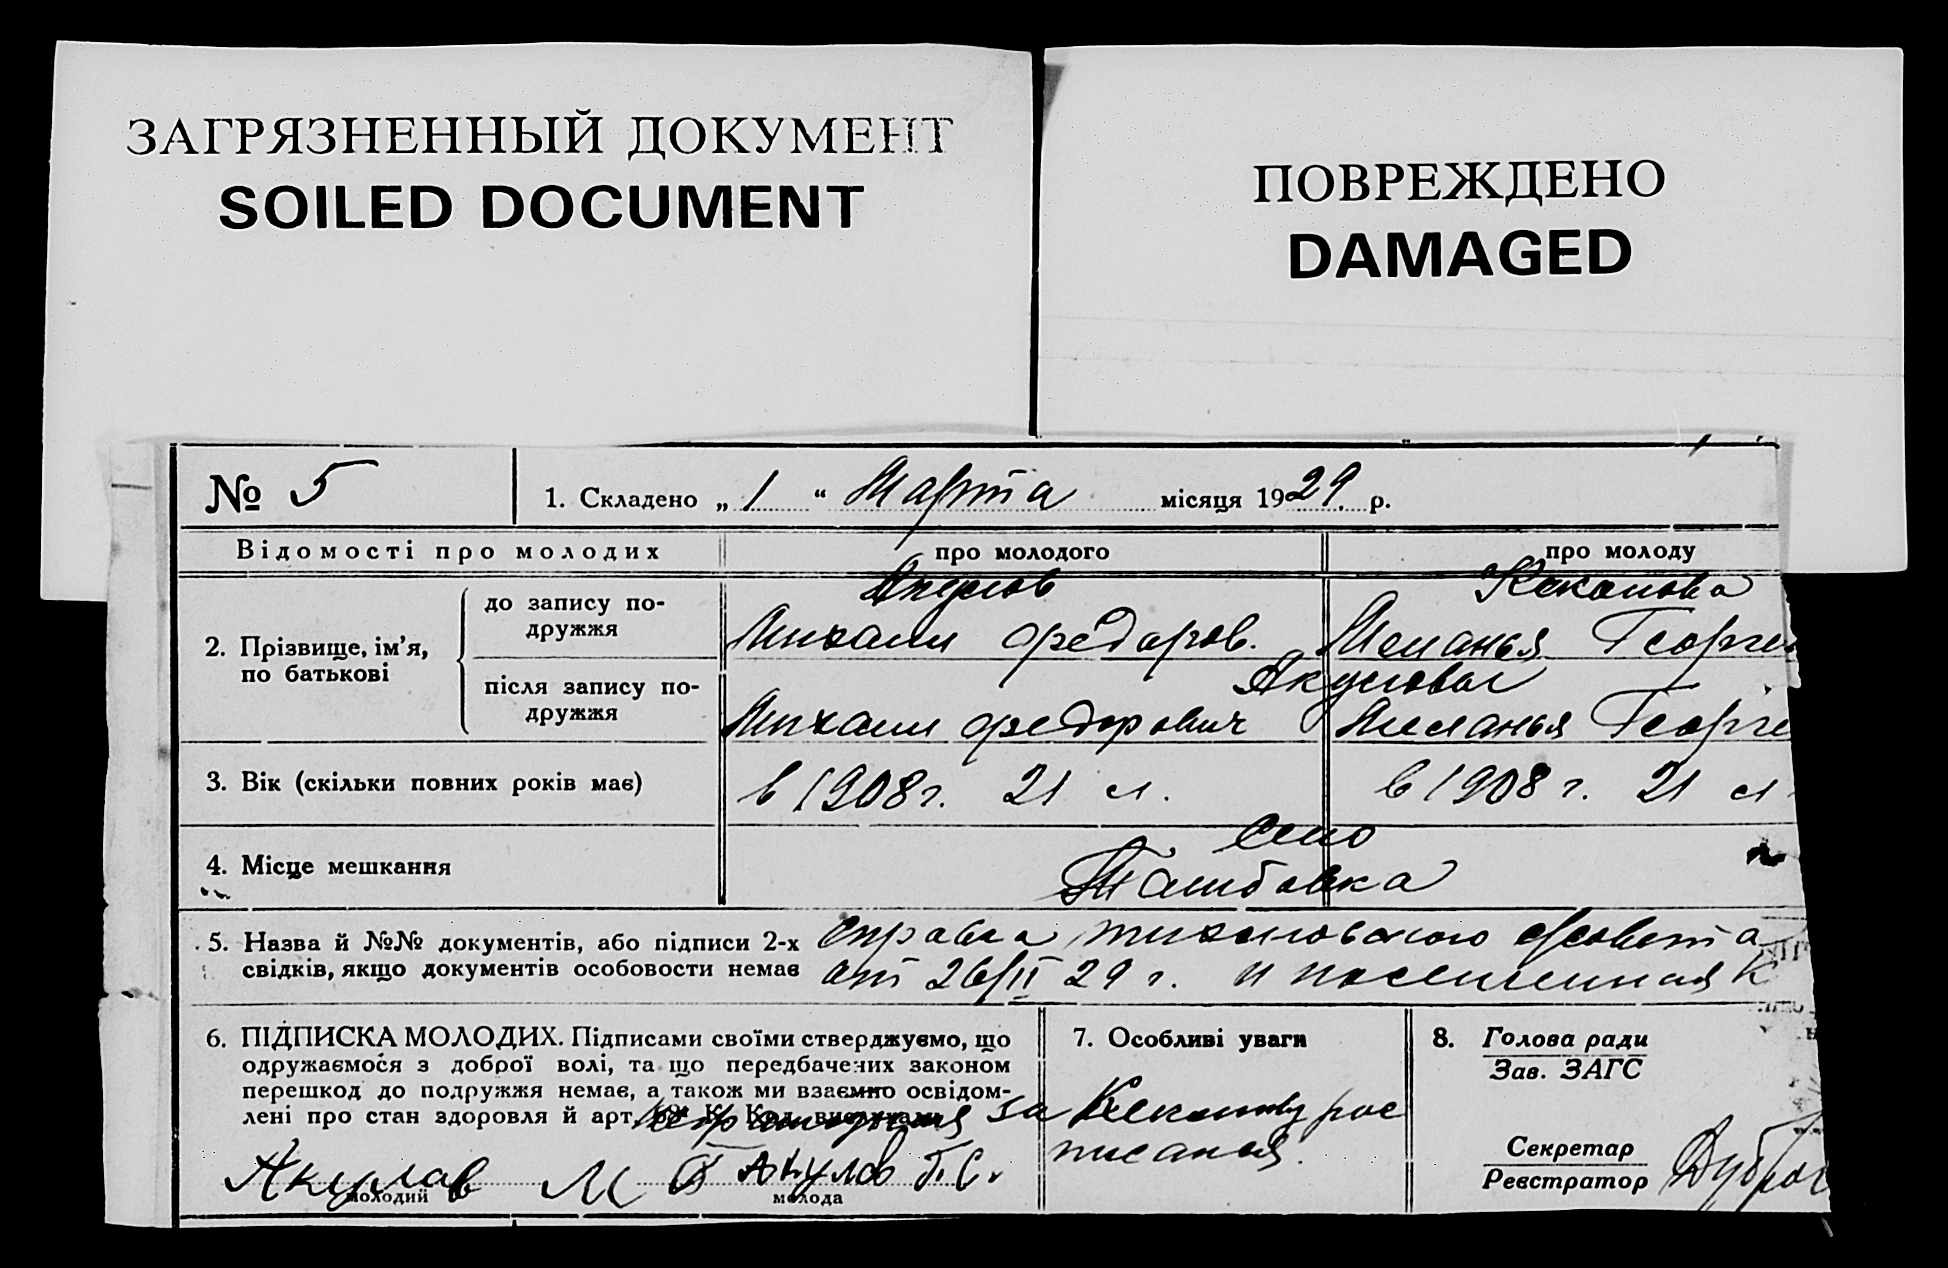 ЗАГРЯЗНЕННЫЙ ДОКУМЕНТ
SOILED DOCUMENT
ПОВРЕЖДЕНО
DAMAGED
№ 5
1. Складено „ 1 “ Марта місяця 1929. р.
Відомості про молодих
про молодого
про молоду
2. Прізвище, ім'я,
по батькові
до запису по-
дружжя
Акулов
Михаил Федоров.
Кеканова
Меланья Георги
після запису по-
дружжя
Михаил Федорович
Акулова
Меланья Георги
3. Вік (скільки повних років має)
в 1908 г. 21 л.
в 1908 г. 21 л
4. Місце мешкання
Село
Ташбовка
5. Назва й №№ документів, або підписи 2-х
свідків, якщо документів особовости немає
Справка сельсовета
от 26/II 29 г. и
6. ПІДПИСКА МОЛОДИХ. Підписами своїми стверджуємо, що
одружаємося з доброї волі, та що передбачених законом
перешкод до подружжя немає, а також ми взаємно освідом-
лені про стан здоровля й арт. К. Код.
Акулов М Ф
молодий
Акулов Г. С.
молода
7. Особливі уваги
за рос
писался.
8. Голова ради
Зав. ЗАГС
Секретар
Реєстратор